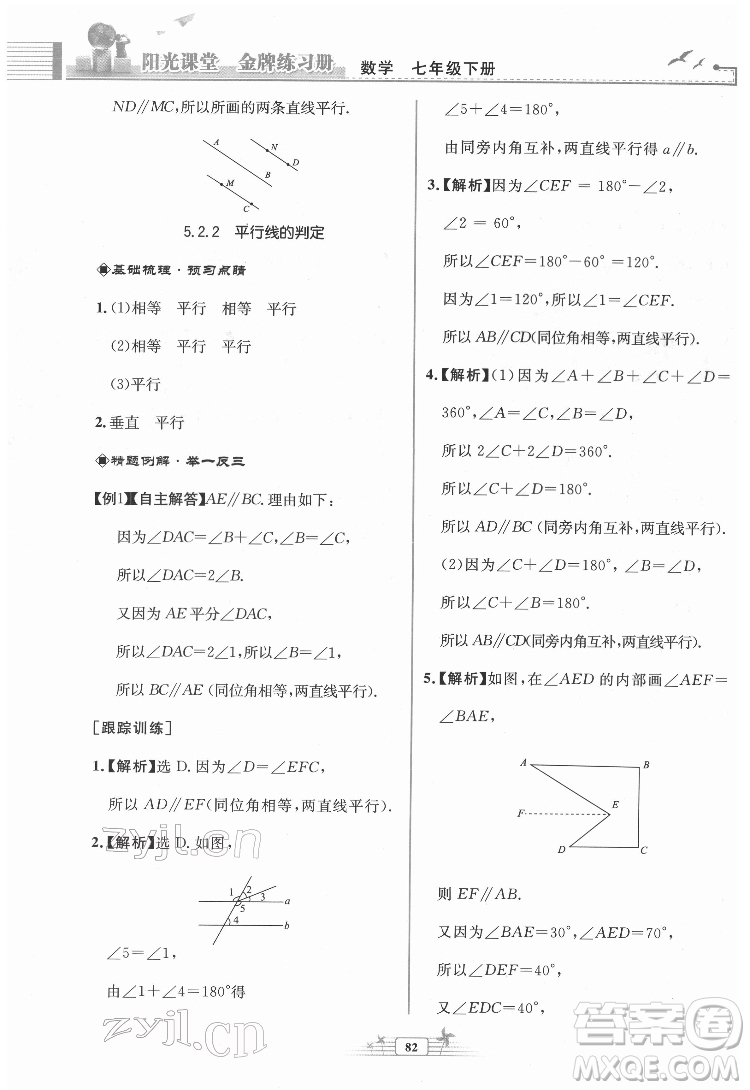 阳光课堂 金牌练习册 数学 七年级下册
ND∥MC,所以所画的两条直线平行.
A N
B D
M
C
5.2.2 平行线的判定
基础梳理·预习点睛
1.(1)相等 平行 相等 平行
(2)相等 平行 平行
(3)平行
2.垂直 平行
精题例解·举一反三
【例1】【自主解答】AE∥BC.理由如下:
因为∠DAC=∠B+∠C,∠B=∠C,
所以∠DAC=2∠B.
又因为AE平分∠DAC,
所以∠DAC=2∠1,所以∠B=∠1,
所以BC∥AE(同位角相等,两直线平行).
[跟踪训练]
1.【解析】选D.因为∠D=∠EFC,
所以AD∥EF(同位角相等,两直线平行).
2.【解析】选D.如图,
1 2 3 a
5
4 b
∠5=∠1,
由∠1+∠4=180°得
∠5+∠4=180°,
由同旁内角互补,两直线平行得a∥b.
3.【解析】因为∠CEF=180°-∠2,
∠2=60°,
所以∠CEF=180°-60°=120°.
因为∠1=120°,所以∠1=∠CEF.
所以AB∥CD(同位角相等,两直线平行).
4.【解析】(1)因为∠A+∠B+∠C+∠D=
360°,∠A=∠C,∠B=∠D,
所以2∠C+2∠D=360°.
所以∠C+∠D=180°,
所以AD∥BC(同旁内角互补,两直线平行).
(2)因为∠C+∠D=180°,∠B=∠D,
所以∠C+∠B=180°,
所以AB∥CD(同旁内角互补,两直线平行).
5.【解析】如图,在∠AED的内部画∠AEF=
∠BAE,
A B
F E
D C
则EF∥AB.
又因为∠BAE=30°,∠AED=70°,
所以∠DEF=40°,
又∠EDC=40°,
zyjl.cn
zyjl.cn
82
答案圈
MXQE.COM